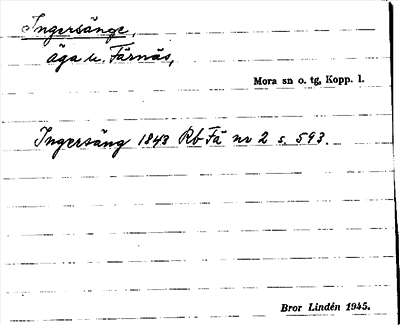 Ingersänge,
äga u. Färnäs,
Mora sn o. tg, Kopp. l.
Ingersäng 1843 Rb Fä nr 2 s. 593.
Bror Lindén 1945.